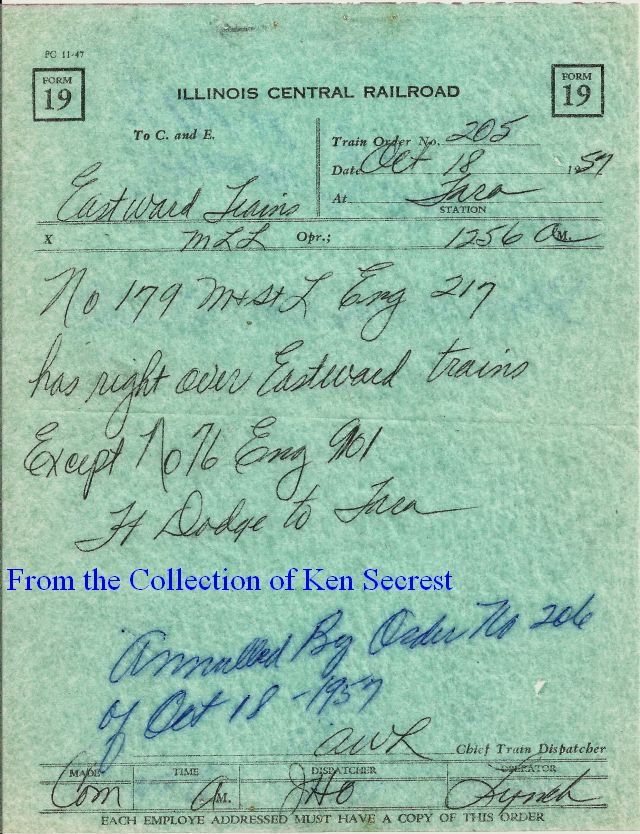 PC 11-47
FORM 19
ILLINOIS CENTRAL RAILROAD
FORM 19
To C. and E.
Train Order No. 205
Date Oct 18 1957
Eastward Trains
At Tara
STATION
X MLL Opr.; 1256 A M.
No 179 M+StL Eng 217
has right over Eastward trains
Except No 76 Eng 901
Ft Dodge to Tara
From the Collection of Ken Secrest
Annulled By Order No 206
of Oct 18 - 1957
AWL Chief Train Dispatcher
MADE TIME DISPATCHER OPERATOR
Com A M. JHO Lynch
EACH EMPLOYE ADDRESSED MUST HAVE A COPY OF THIS ORDER